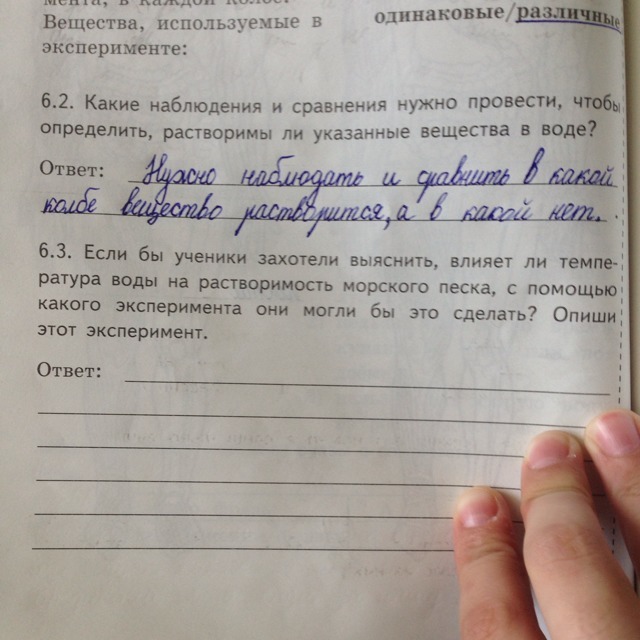 мента, в каждой колбе:
Вещества, используемые в одинаковые/различные
эксперименте:
6.2. Какие наблюдения и сравнения нужно провести, чтобы
определить, растворимы ли указанные вещества в воде?
Ответ: Нужно наблюдать и сравнить в какой
колбе вещество растворится, а в какой нет.
6.3. Если бы ученики захотели выяснить, влияет ли темпе-
ратура воды на растворимость морского песка, с помощью
какого эксперимента они могли бы это сделать? Опиши
этот эксперимент.
Ответ: